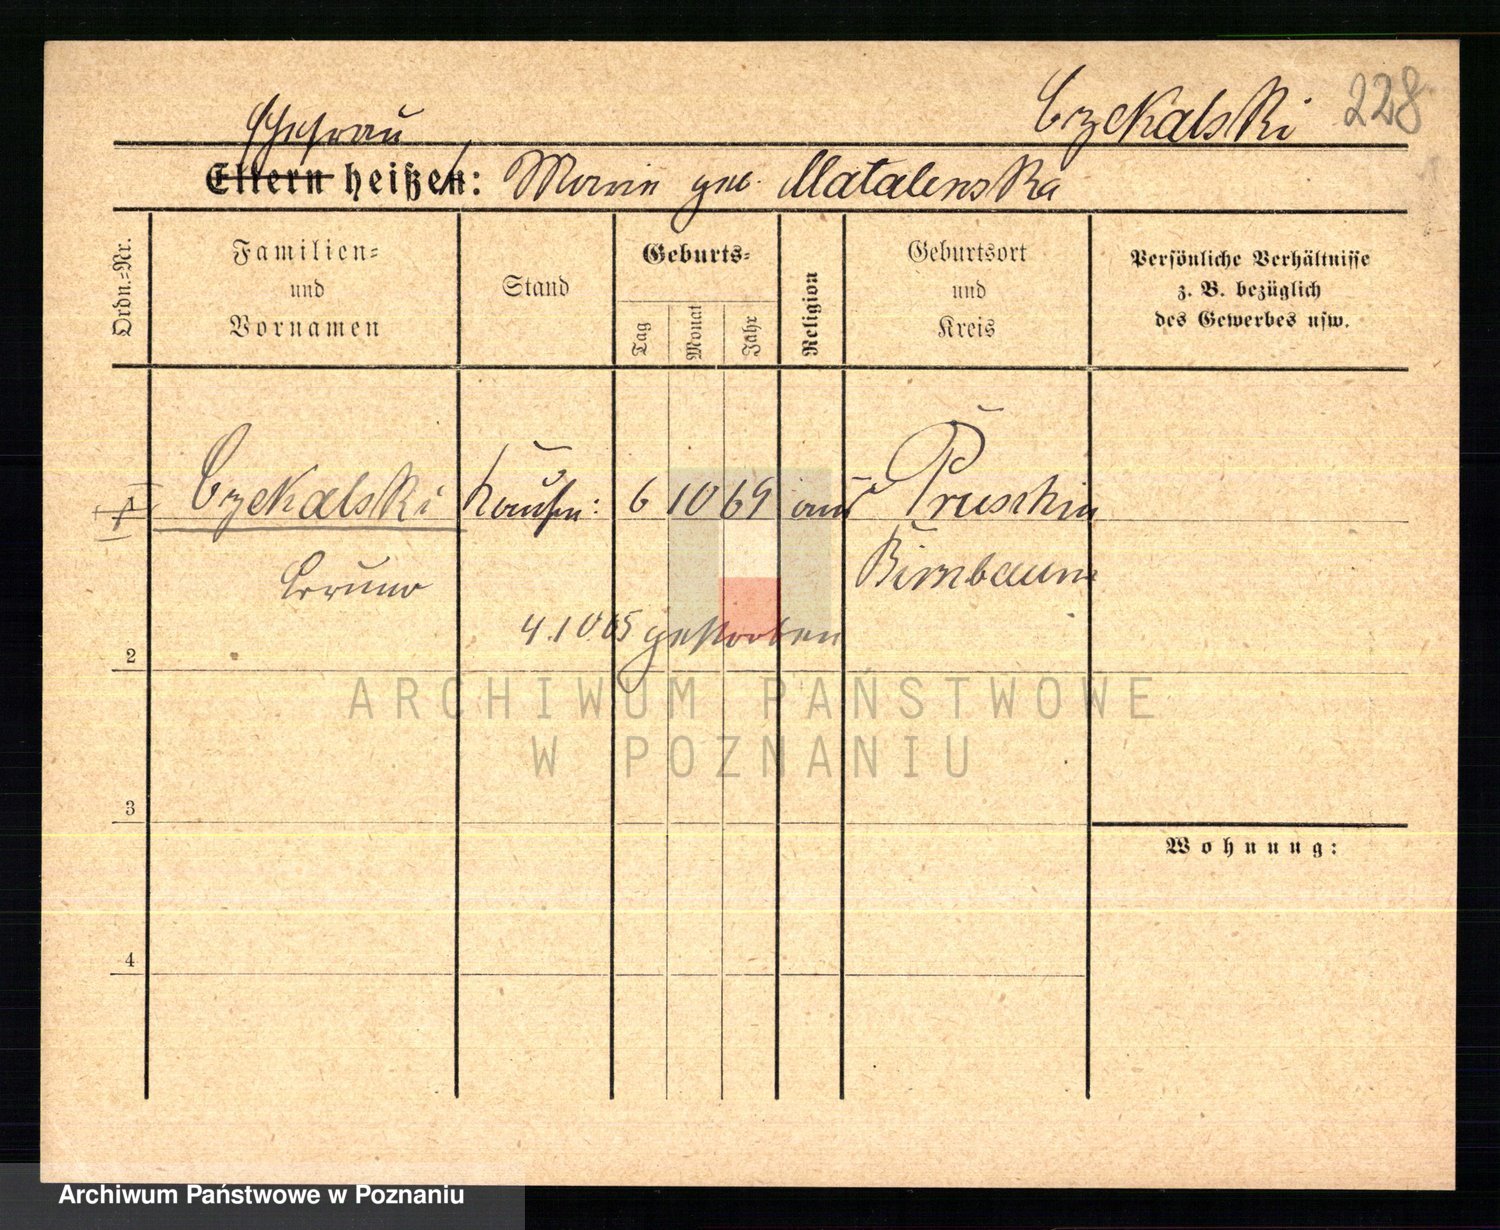 Czekalski 228
Ehefrau
Eltern heißen: Marie geb. Matalenska
Ordn.-Nr.
Familien-
und
Vornamen
Stand
Geburts-
Tag
Monat
Jahr
Religion
Geburtsort
und
Kreis
Persönliche Verhältnisse
z. B. bezüglich
des Gewerbes usw.
1 Czekalski Kaufm: 6 10 69 Pruschim
Bruno Birnbaum
4.10.05 gestorben
2
ARCHIWUM PAŃSTWOWE
W POZNANIU
3
Wohnung:
4
Archiwum Państwowe w Poznaniu